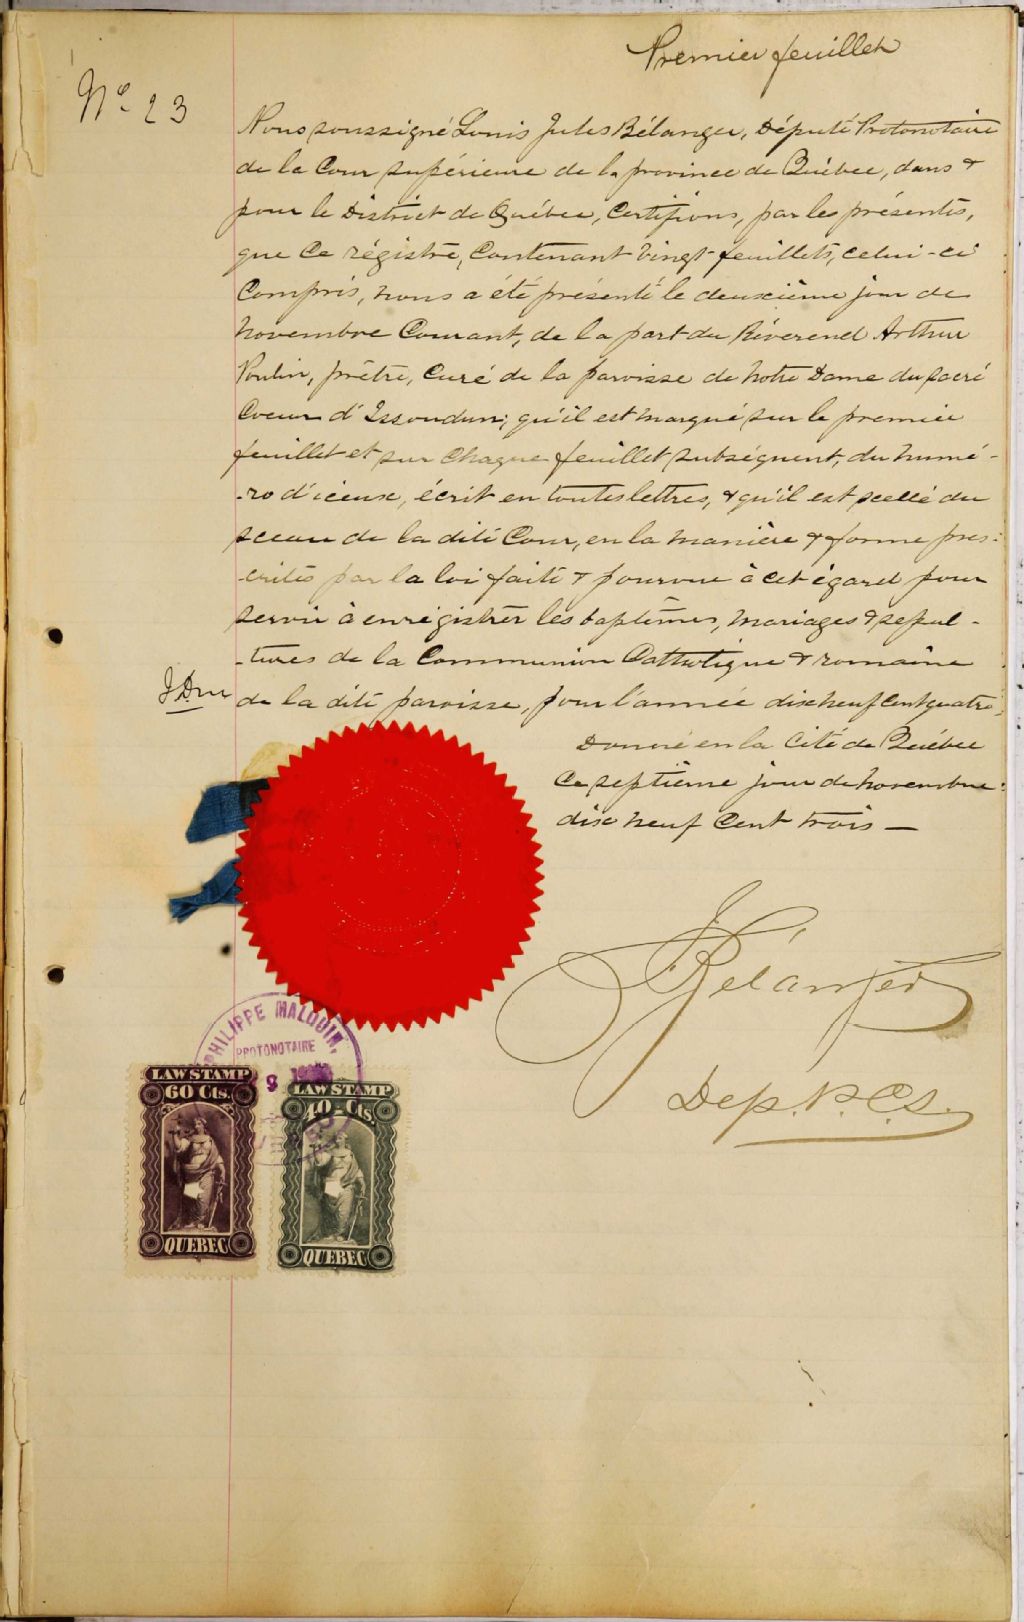 Premier feuillet
No 23
Nous soussigné Louis Jules Bélanger, Député Protonotaire
de la Cour supérieure de la province de Québec, dans &
pour le District de Québec, Certifions, par les présentes,
que Ce régistre, Contenant vingt feuillets, celui-ci
Compris, nous a été présenté le deuxième jour de
novembre Courant, de la part du Réverend Arthur
Poulin, prêtre, Curé de la paroisse de Notre Dame du sacré
Coeur d'Issoudun; qu'il est marqué sur le premier
feuillet et sur Chaque feuillet subséquent, du numé-
-ro d'iceux, écrit en toutes lettres, & qu'il est scellé du
sceau de la dite Cour, en la manière & forme pres-
-crites par la loi faite & pourvue à cet égard pour
servir à enrégistrer les baptêmes, mariages & sepul-
-tures de la Communion Catholique & romaine
de la dite paroisse, pour l'année dix neuf Cent quatre,
Donné en la Cité de Québec
Ce septième jour de novembre
dix neuf Cent trois —
JBélanger
Dep. P. C. S.
PHILIPPE MALOUIN,
PROTONOTAIRE
9
LAW STAMP
60 Cts.
QUEBEC
LAW STAMP
40 Cts.
QUEBEC